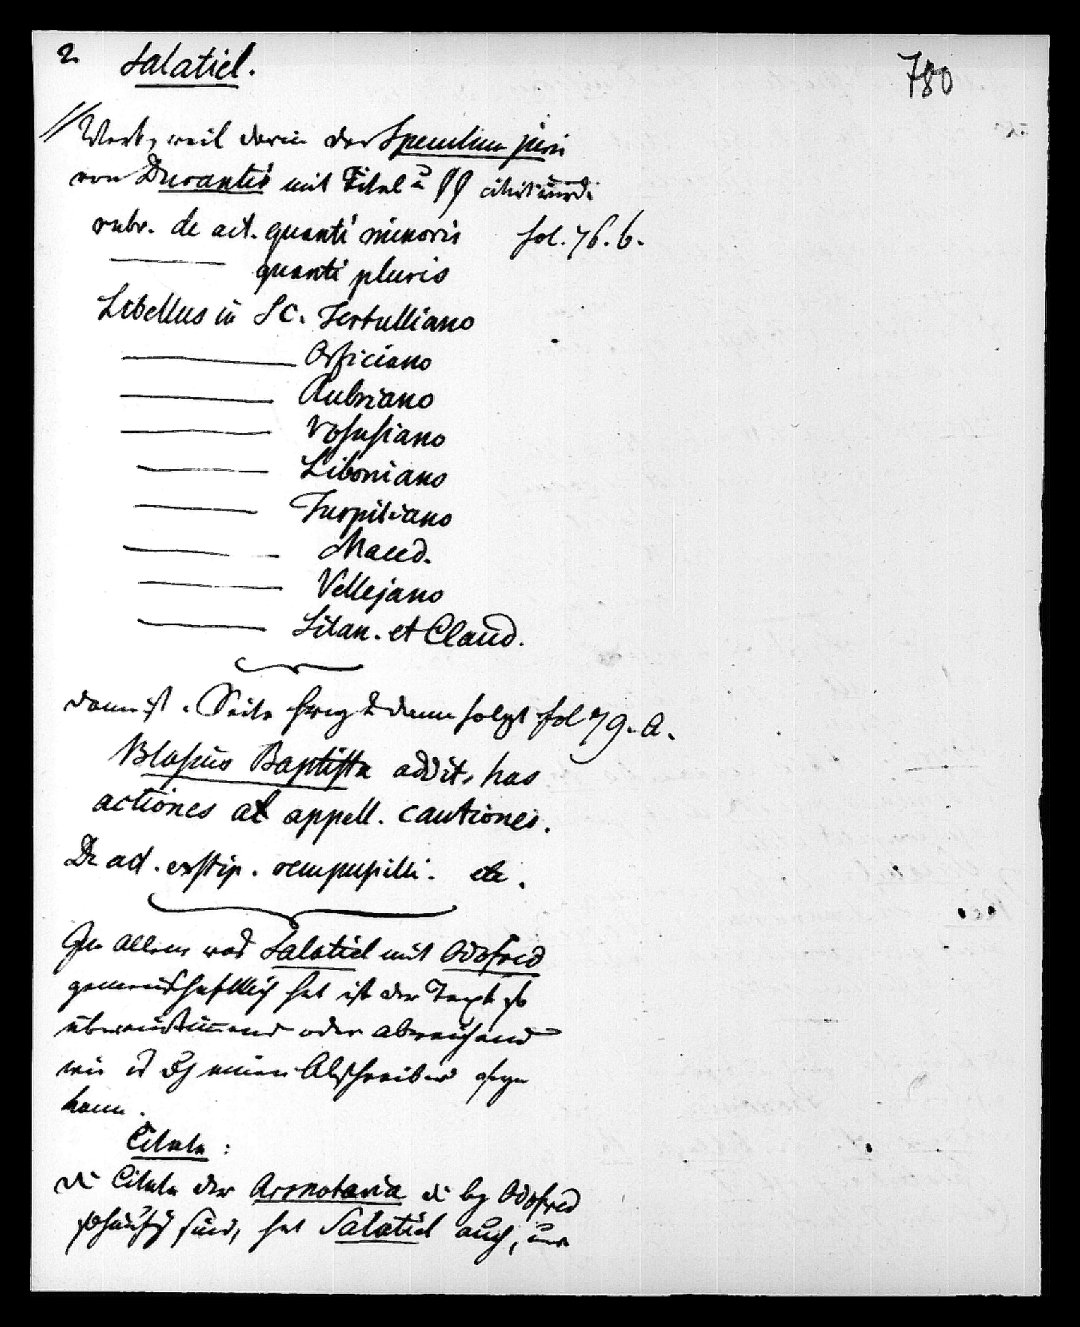 2 Salatiel.
780
// Werk, weil darin das Speculum juris
von Durantis mit Titel u. §§ citirt wird:
rubr. de act. quanti minoris fol. 76. b.
——— quanti pluris
Libellus in SC. Tertulliano
——— Orficiano
——— Rubriano
——— Vosusiano
——— Liboniano
——— Turpiliano
——— Maced.
——— Vellejano
——— Litan. et Claud.
dann ist 1. Seite & dann folgt fol 79. a.
Blasius Baptista addit, has
actiones et appell. cautiones.
De act. ex stip. rem pupilli. etc.
In allem was Salatiel mit Odofred
gemeinschaftlich hat ist der Text so
übereinstimmend oder abweichend
wie es bey einem Abschreiber seyn
kann.
Citate:
die Citate der Aronotaria die bey Odofred
so häufig sind, hat Salatiel auch, nur